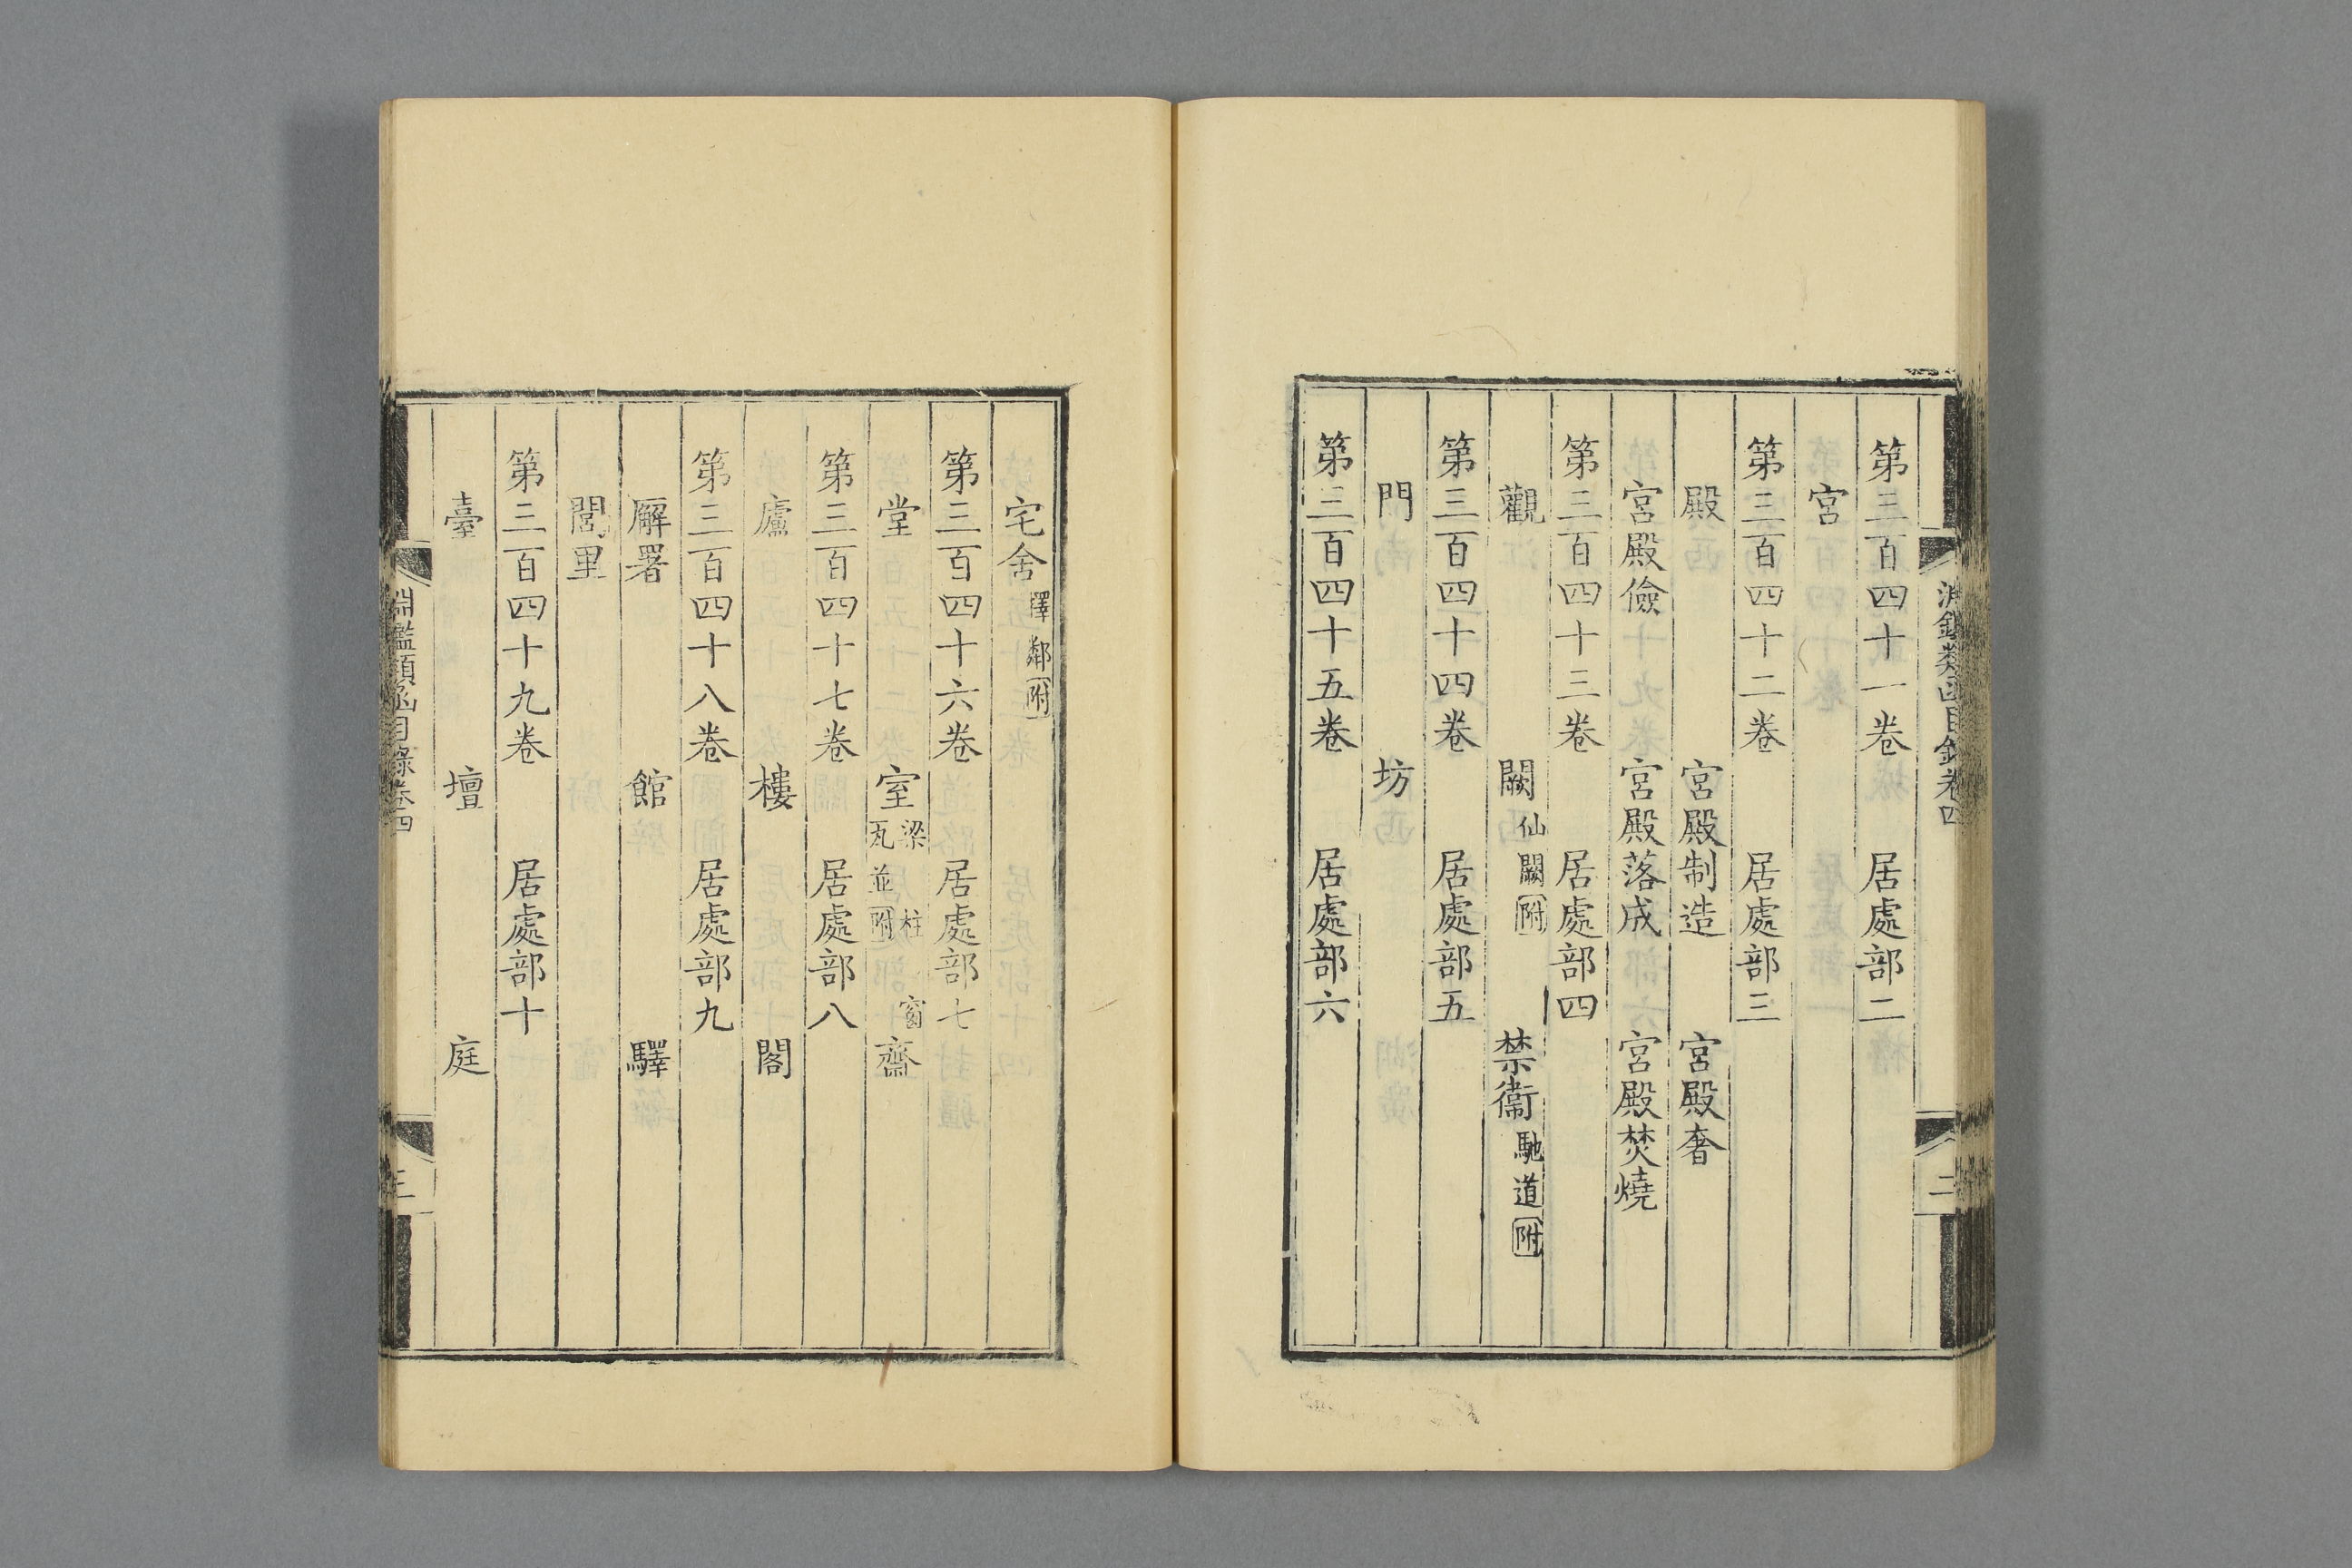 第三百四十一卷　居處部二
宮
第三百四十二卷　居處部三
殿　宮殿制造　宮殿奢
宮殿儉　宮殿落成　宮殿焚燒
第三百四十三卷　居處部四
觀　闕仙闕附　禁衞馳道附
第三百四十四卷　居處部五
門　坊
第三百四十五卷　居處部六
宅舍擇鄰附
第三百四十六卷　居處部七
堂　室梁柱窗瓦並附　齋
第三百四十七卷　居處部八
廬　樓　閣
第三百四十八卷　居處部九
廨署　館　驛
閭里
第三百四十九卷　居處部十
臺　壇　庭
淵鑑類函目錄卷四
三